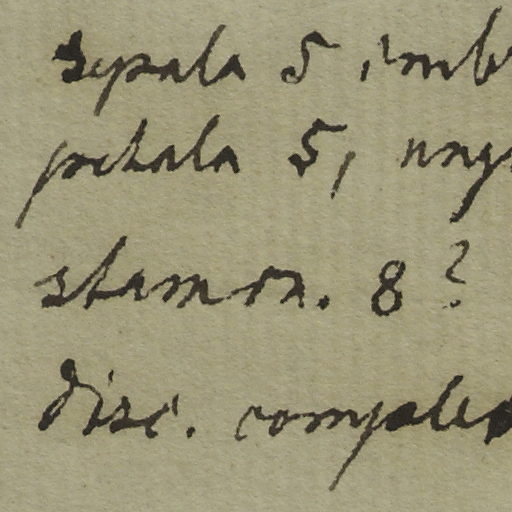 sepala 5 imb
petala 5, ung
stamon. 8?
disc. comple